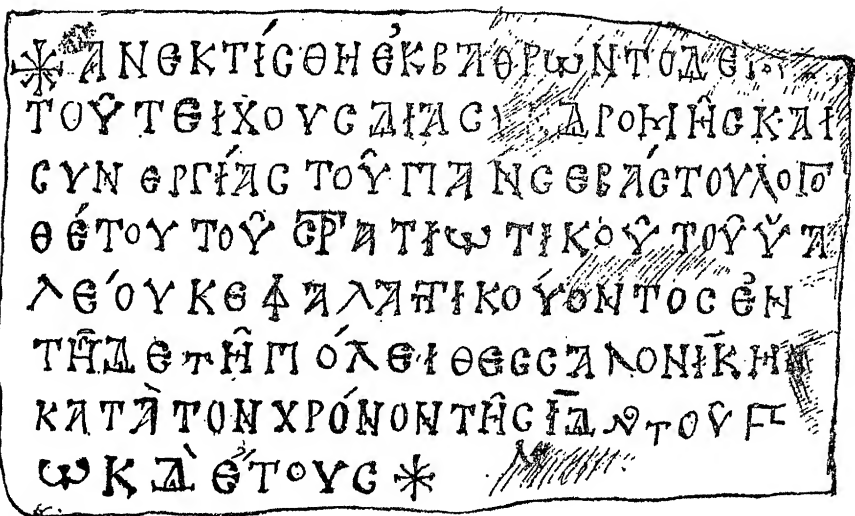 ἈΝΕΚΤΊΣΘΗ ἘΚ ΒΆΘΡΩΝ ΤῸ ΔΕ
ΤΟΥ͂ ΤΕΊΧΟΥΣ ΔΙᾺ Σ ΔΡΟΜΗ͂Σ ΚΑῚ
ΣΥΝΕΡΓΊΑΣ ΤΟΥ͂ ΠΑΝΣΕΒΆΣΤΟΥ ΛΟΓΟ
ΘΈΤΟΥ ΤΟΥ͂ ΣΤΡΑΤΙΩΤΙΚΟΥ͂ ΤΟΥ͂ ὙΑ
ΛΈΟΥ ΚΕΦΑΛΑΤΤΙΚΟΎΟΝΤΟΣ ἘΝ
ΤΗ͂ΔΕ ΤΗ͂ ΠΌΛΕΙ ΘΕΣΣΑΛΟΝΊΚΗ
ΚΑΤᾺ ΤΟΝ ΧΡΌΝΟΝ ΤΗ͂Σ ΙΔ Ν ΤΟΥ͂ Ϛ
ΩΚΔ ἜΤΟΥΣ